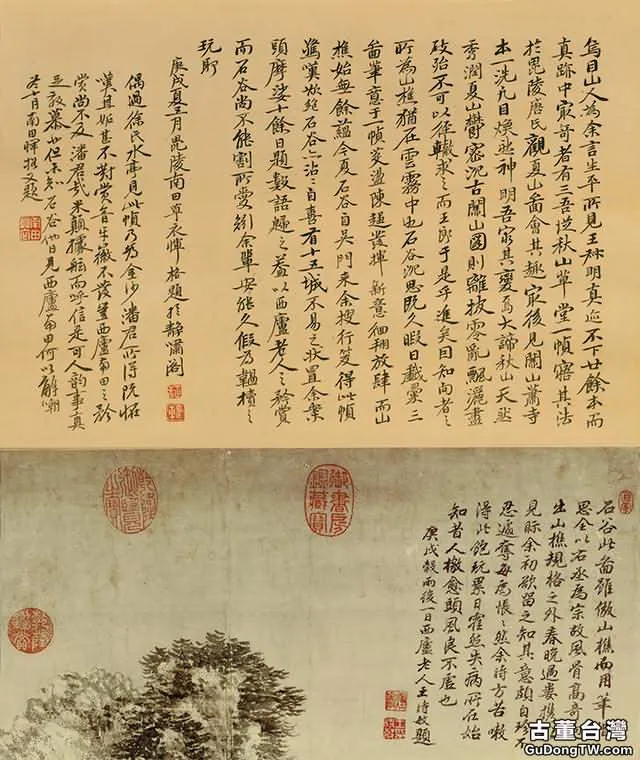 烏目山人為余言生平所見王叔明真跡不下廿餘本而
真跡中最奇者有三吾從秋山草堂一幀寤其法
於毘陵唐氏觀夏山圖會其趣最後見關山蕭寺
本一洗凡目煥然神明吾窮其變焉大諦秋山天然
秀潤夏山鬱密沉古關山圖則離披零亂飄灑盡
致殆不可以徑轍求之而王郎于是乎進矣因知向者之
所為山樵猶在雲霧中也石谷沉思既久暇日戲彙三
圖筆意于一幀滌盪陳趨發揮新意徊翔放肆而山
樵始無餘蘊今夏石谷自吳門來余搜行笈得此幀
驚嘆欲絕石谷亦沾沾自喜有十五城不易之狀置余案
頭摩娑十餘日題數語歸之蓋以西廬老人之矜賞
而石谷尚不能割所愛矧余輩安能久假為韞櫝之
玩耶
庚戌夏五月毘陵南田草衣惲格題於靜嘯閣
偶過徐氏水亭見此幀乃為金沙潘君所得既怪
嘆且妒甚不對賞音牙徽不發豈西廬南田之矜
賞尚不及潘君哉米顛據舷而呼信是可人韻事真
足效慕也但未知石谷他日見西廬南田何以解嘲
冬十月南田惲格又題
石谷此圖雖倣山樵而用筆
思全以右丞為宗故風骨高奇
出山樵規格之外春晚過婁攜
見眎余初欲留之知其意頗自珍不
忍遽奪每為悵悵然余時方苦嗽
得此飽玩累日霍然失病所在始
知昔人檄愈頭風良不虛也
庚戌穀雨後一日西廬老人王時敏題
御書房鑑藏寶
古董台灣
GuDongTW.com